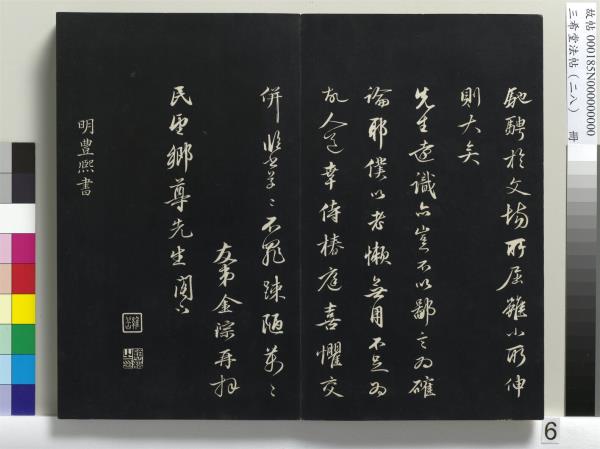 馳騁於文場所屈雖小所伸
則大矣
先生遠識亦豈不以鄙言為確
論耶僕以老懶無用不足為
故人道幸侍椿庭喜懼交
併監草〻不罪疎陋萬〻
友弟金淙再拜
民望鄉尊先生閣下
明豐熙書
故帖 000185N000000000
三希堂法帖(二八) 冊
6